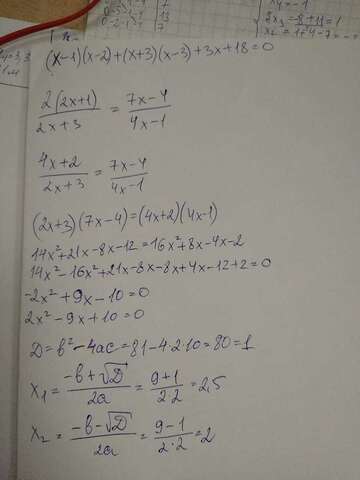 (x-1)(x-2)+(x+3)(x-3)+3x+18=0
2(2x+1)/2x+3 = 7x-4/4x-1
4x+2/2x+3 = 7x-4/4x-1
(2x+3)(7x-4)=(4x+2)(4x-1)
14x²+21x-8x-12=16x²+8x-4x-2
14x²-16x²+21x-8x-8x+4x-12+2=0
-2x²+9x-10=0
2x²-9x+10=0
D=b²-4ac=81-4·2·10=80=1
x₁=-b+√D/2a=9+1/2·2=2,5
x₂=-b-√D/2a=9-1/2·2=2